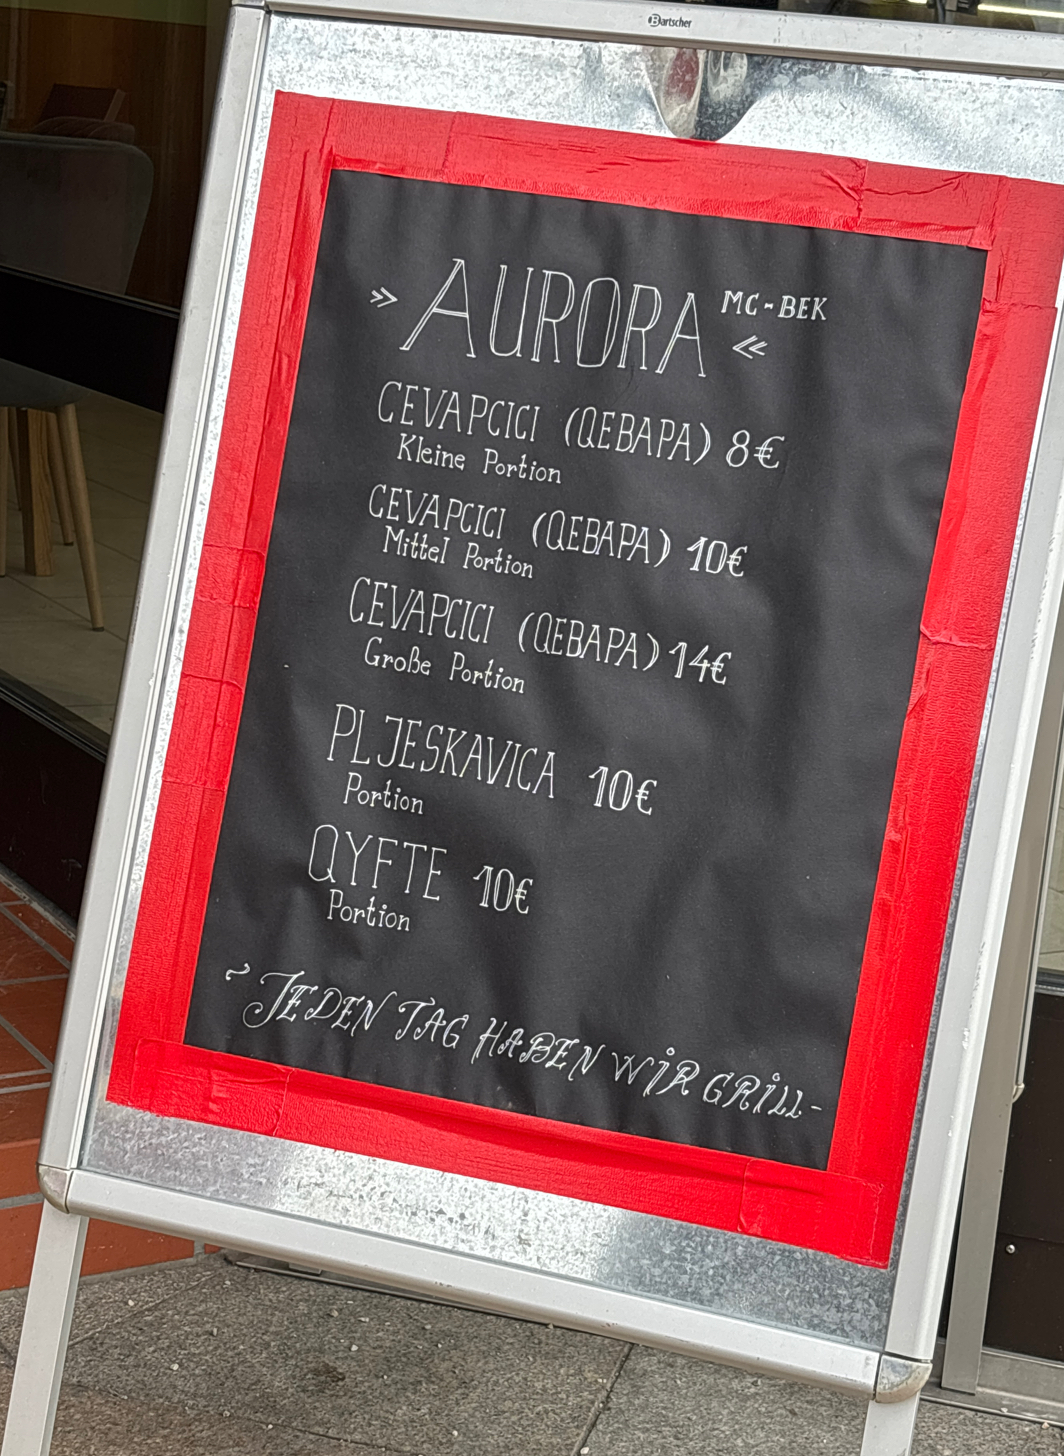 Bartscher
» AURORA MC-BEK «
CEVAPCICI (QEBAPA) 8€
Kleine Portion
CEVAPCICI (QEBAPA) 10€
Mittel Portion
CEVAPCICI (QEBAPA) 14€
Große Portion
PLJESKAVICA 10€
Portion
QYFTE 10€
Portion
~ JEDEN TAG HABEN WIR GRILL-